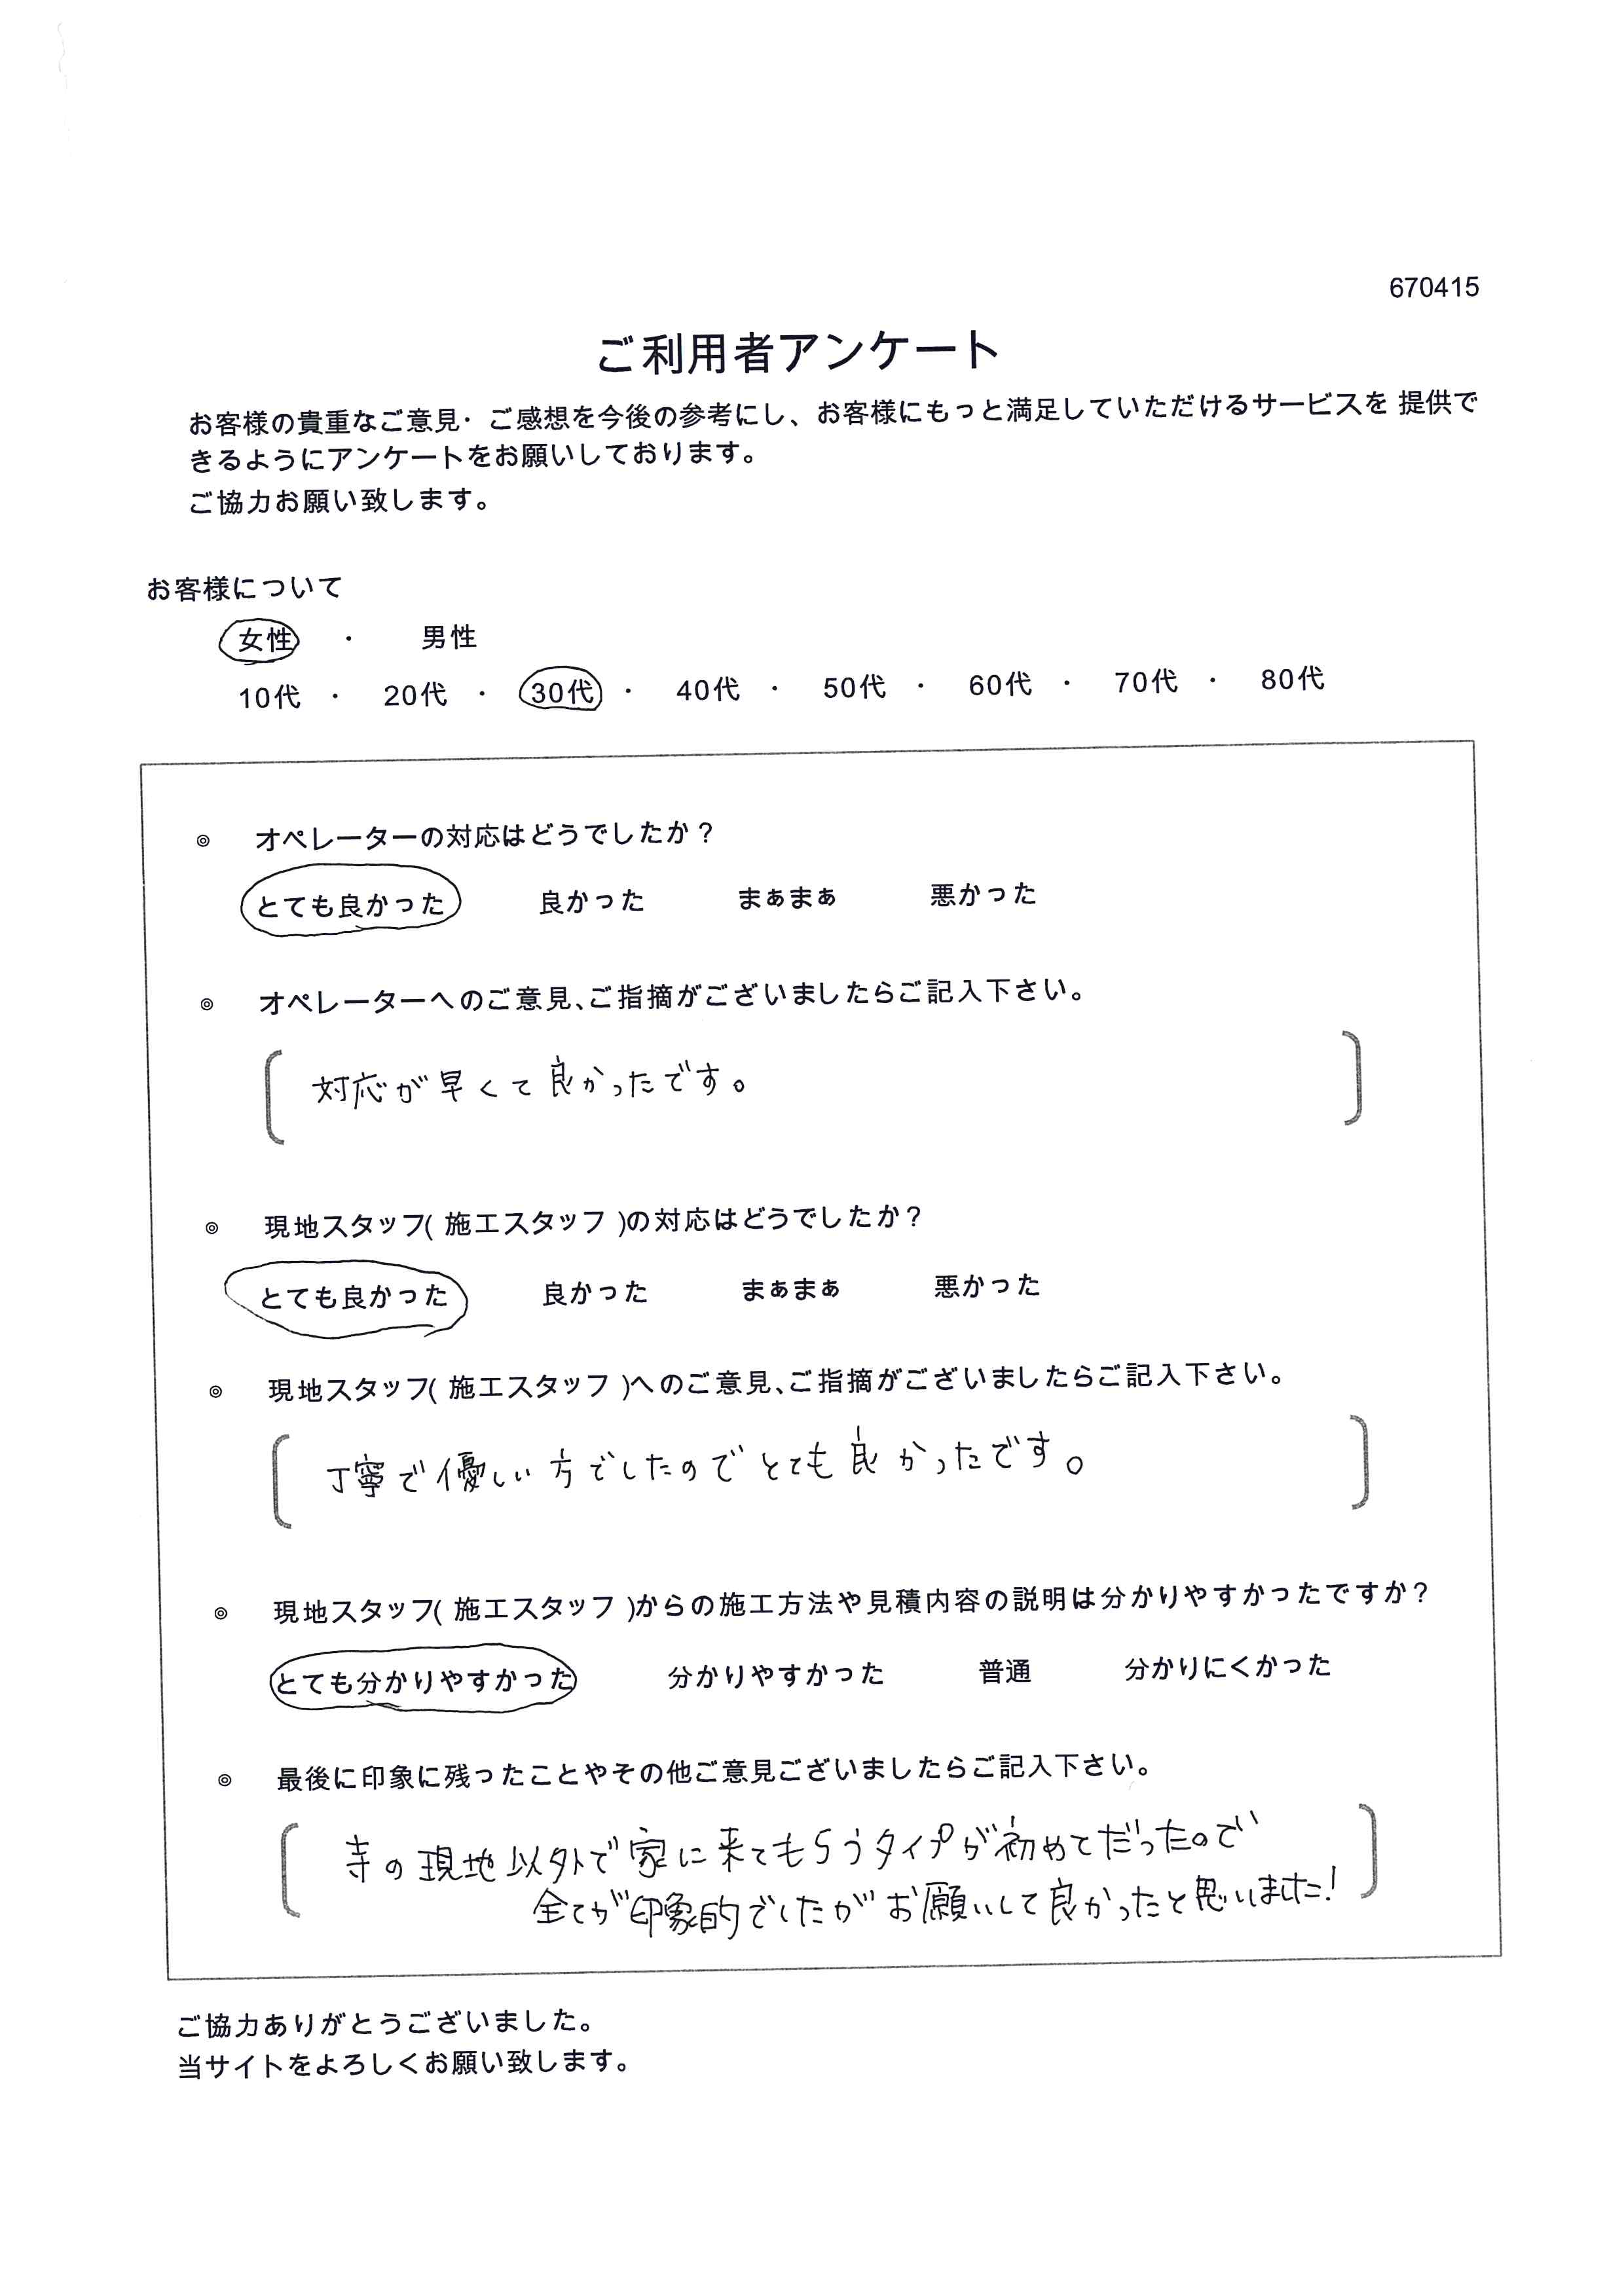 670415
ご利用者アンケート
お客様の貴重なご意見・ご感想を今後の参考にし、お客様にもっと満足していただけるサービスを 提供で
きるようにアンケートをお願いしております。
ご協力お願い致します。
お客様について
女性 ・ 男性
10代 ・ 20代 ・ 30代 ・ 40代 ・ 50代 ・ 60代 ・ 70代 ・ 80代
◎ オペレーターの対応はどうでしたか？
とても良かった 良かった まぁまぁ 悪かった
◎ オペレーターへのご意見、ご指摘がございましたらご記入下さい。
対応が早くて良かったです。
◎ 現地スタッフ( 施工スタッフ )の対応はどうでしたか？
とても良かった 良かった まぁまぁ 悪かった
◎ 現地スタッフ( 施工スタッフ )へのご意見、ご指摘がございましたらご記入下さい。
丁寧で優しい方でしたのでとても良かったです。
◎ 現地スタッフ( 施工スタッフ )からの施工方法や見積内容の説明は分かりやすかったですか？
とても分かりやすかった 分かりやすかった 普通 分かりにくかった
◎ 最後に印象に残ったことやその他ご意見ございましたらご記入下さい。
寺の現地以外で家に来てもらうタイプが初めてだったので
全てが印象的でしたがお願いして良かったと思いました!
ご協力ありがとうございました。
当サイトをよろしくお願い致します。